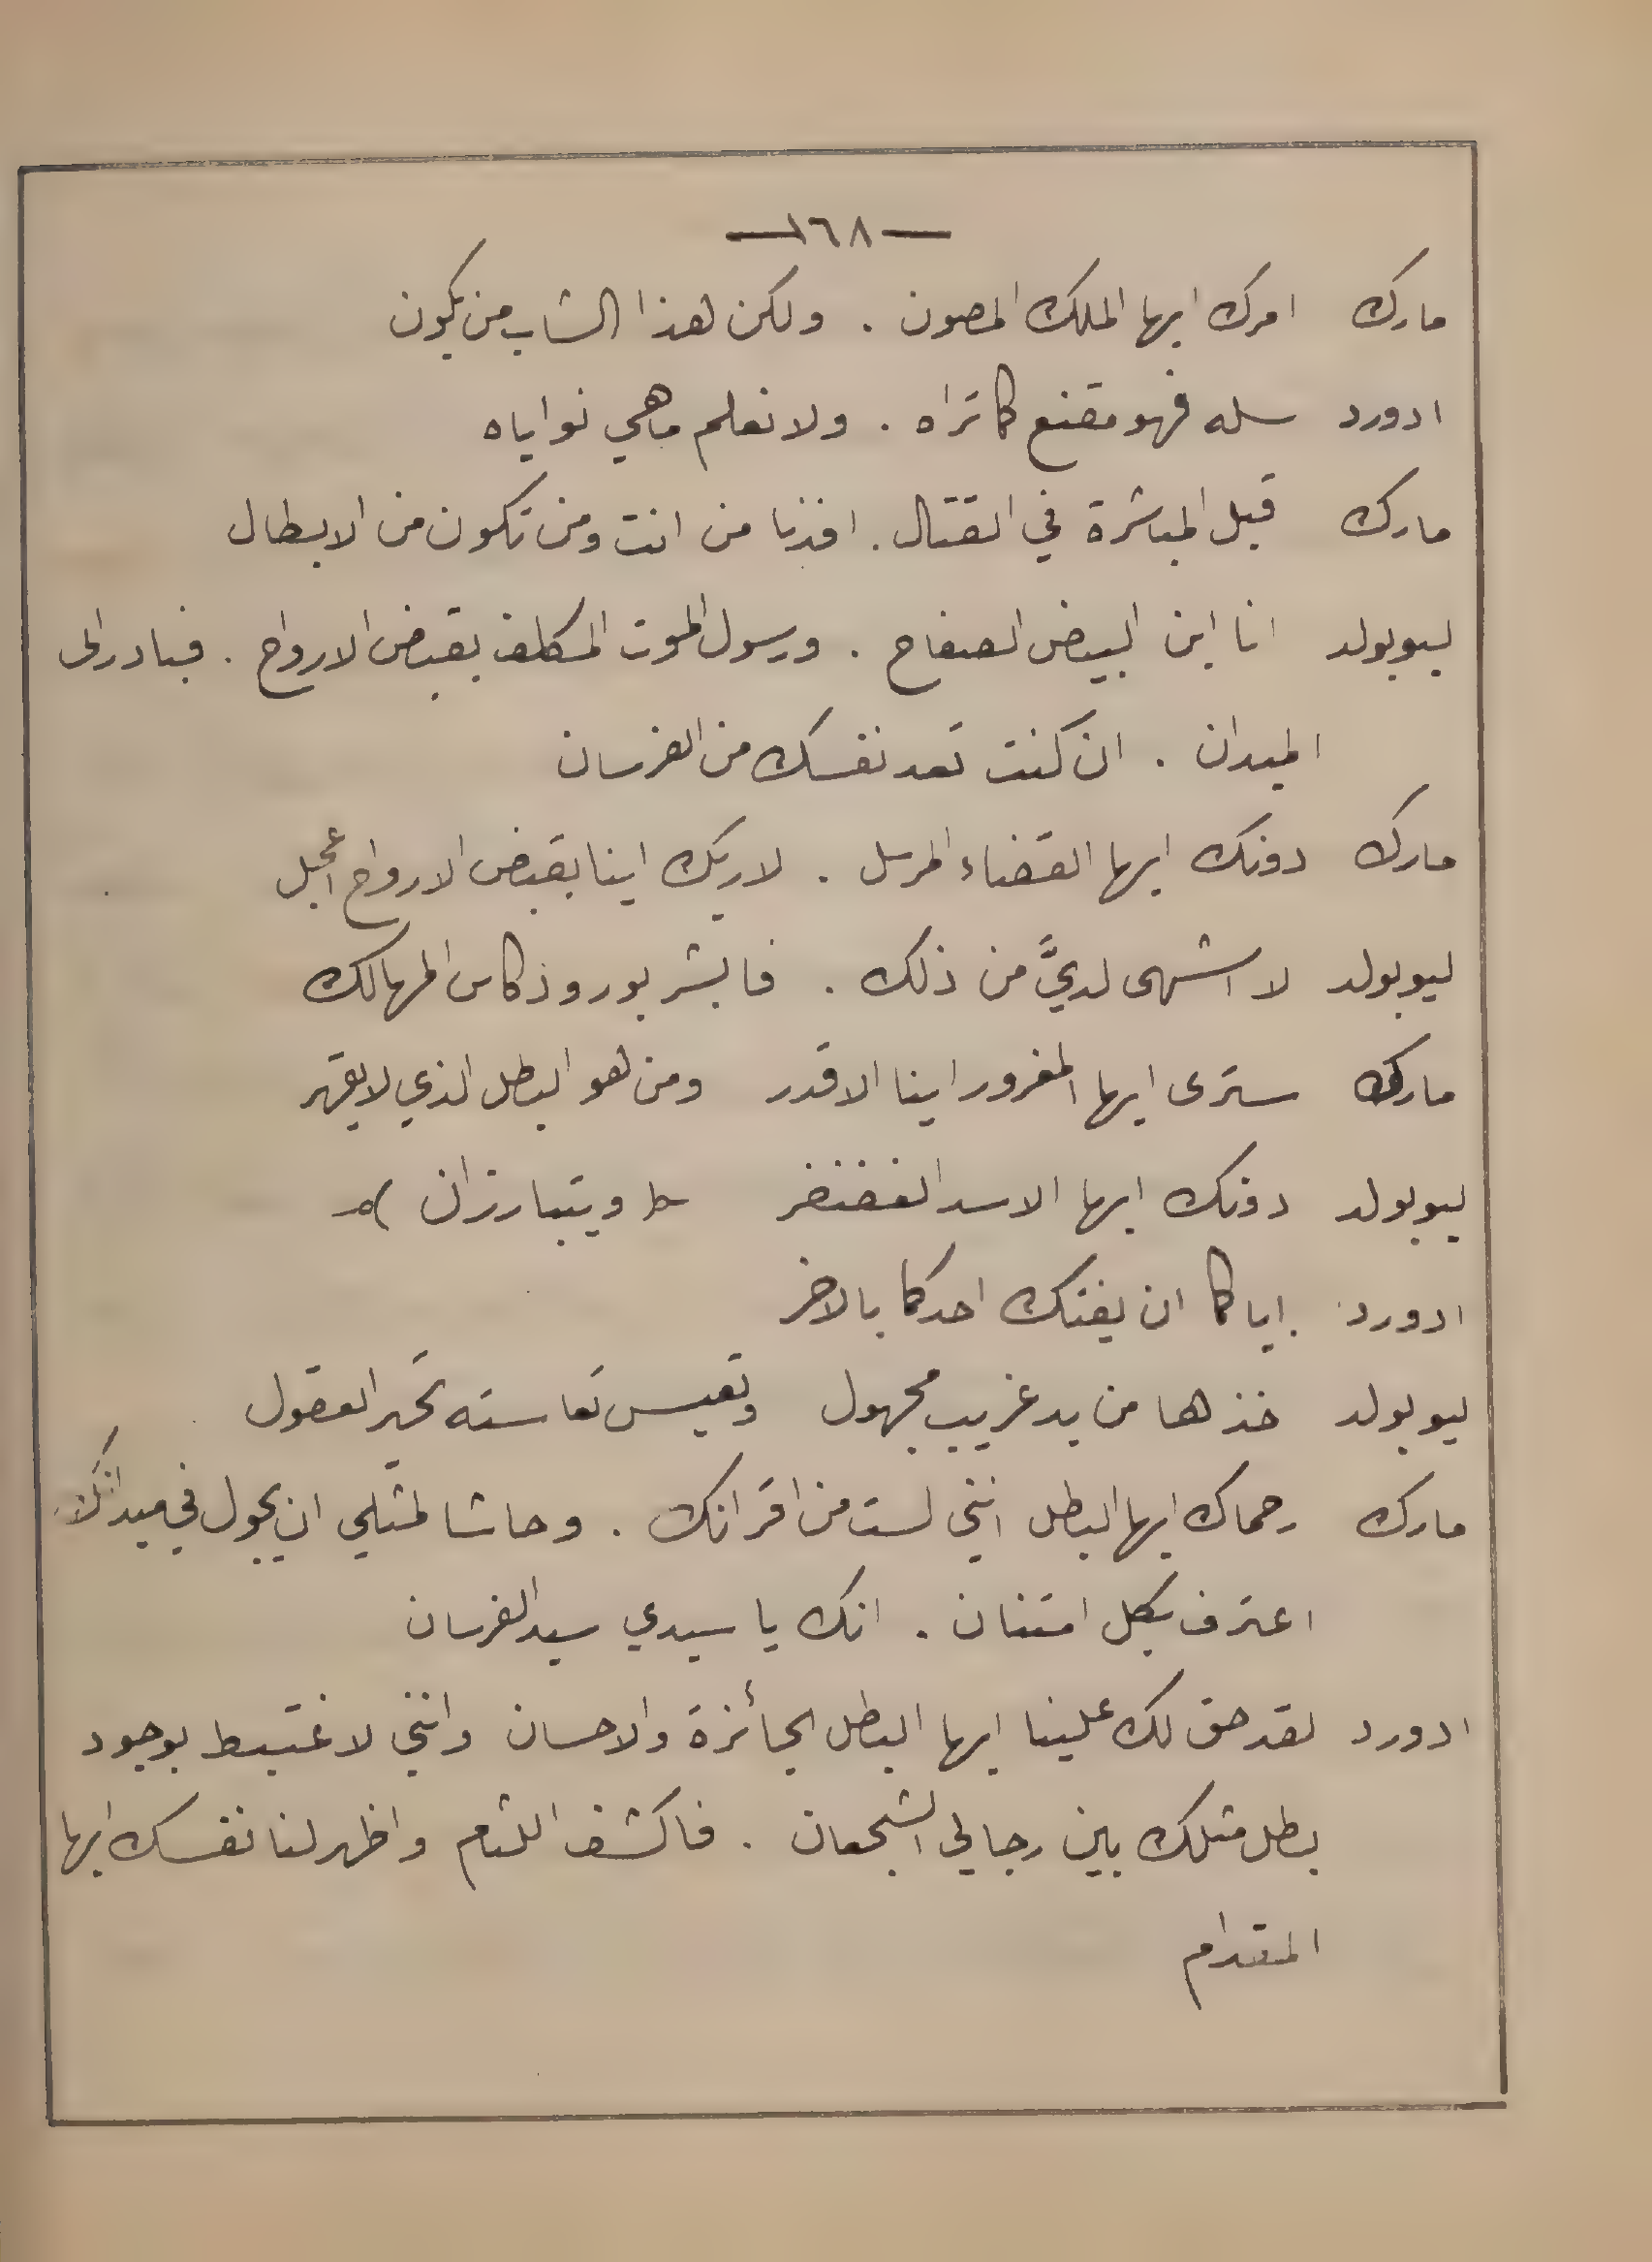 —١٦٨—
مارك امرك ايها الملك المصون . ولكن هذا الشاب من يكون
ادورد سله فهو مقنع كما تراه . ولا نعلم ما هي نواياه
مارك قبل المباشرة في القتال . افدنا من انت ومن تكون من الابطال
ليوبولد انا ابن البيض الصفاح . ورسول الموت المكلف بقبض الارواح . فبادر الى
الميدان . ان كنت تعد نفسك من الفرسان
مارك دونك ايها القضاء المرسل . لاريك اينا بقبض الارواح اعجل
ليوبولد لا اشهى لديَّ من ذلك . فابشر بورود كاس المهالك
مارك سترى ايها المغرور اينا الاقدر ومن هو البطل الذي لا يقهر
ليوبولد دونك ايها الاسد الغضنفر ( ويتبارزان )
ادورد اياكما ان يفتك احدكما بالاخر
ليوبولد خذها من يد غريب مجهول وتعيس تعاسته تحير العقول
مارك رحماك ايها البطل انني لست من اقرانك . وحاشا لمثلي ان يجول في ميدانك
اعترف بكل امتنان . انك يا سيدي سيد الفرسان
ادورد لقد حق لك علينا ايها البطل الجائزة والاحسان وانني لاغتبط بوجود
بطل مثلك بين رجالي الشجعان . فاكشف اللثام واظهر لنا نفسك ايها
المقدام